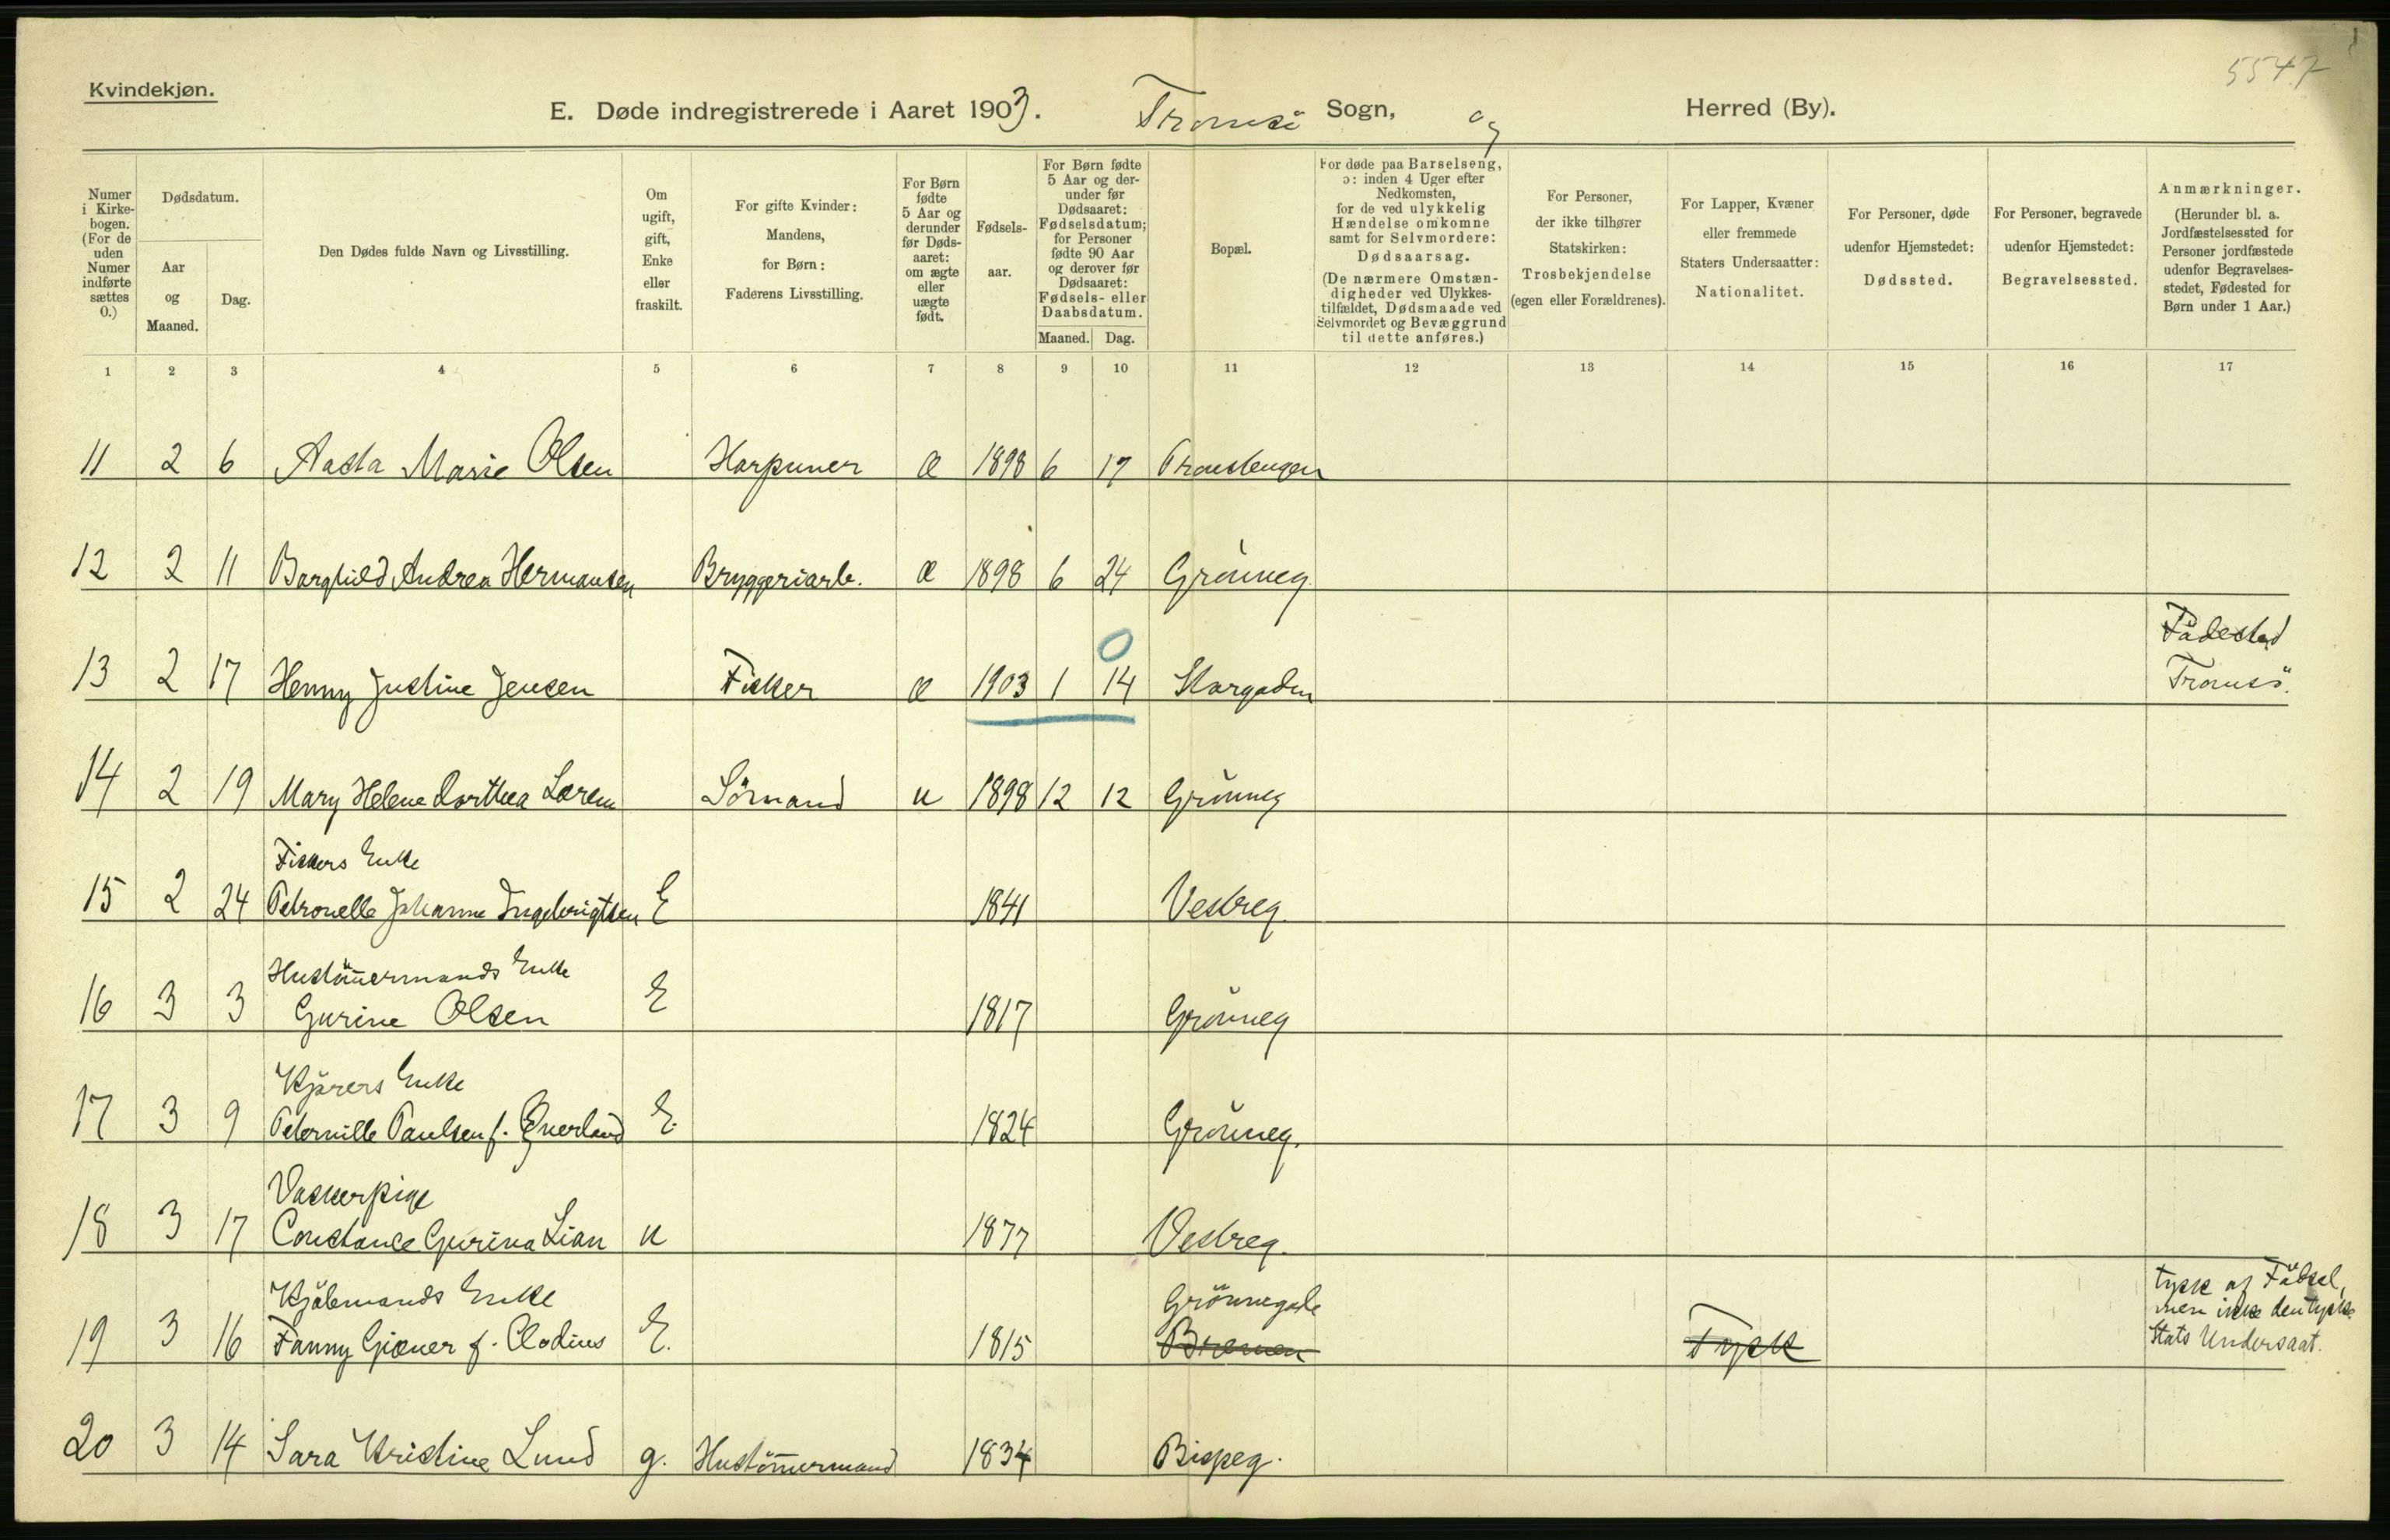 5547
Kvindekjøn.
E. Døde indregistrerede i Aaret 1903. Tromsö Sogn, og Herred (By).
Numer i Kirkebogen. (For de uden Numer indførte sættes 0.)
Dødsdatum.
Aar og Maaned.
Dag.
Den Dødes fulde Navn og Livsstilling.
Om ugift, gift, Enke eller fraskilt.
For gifte Kvinder: Mandens, for Børn: Faderens Livsstilling.
For Børn fødte 5 Aar og derunder før Dødsaaret: om ægte eller uægte født.
Fødselsaar.
For Børn fødte 5 Aar og derunder før Dødsaaret: Fødselsdatum; for Personer fødte 90 Aar og derover før Dødsaaret: Fødsels- eller Daabsdatum.
Maaned. Dag.
Bopæl.
For døde paa Barselseng, ɔ: inden 4 Uger efter Nedkomsten, for de ved ulykkelig Hændelse omkomne samt for Selvmordere: Dødsaarsag.
(De nærmere Omstændigheder ved Ulykkestilfældet, Dødsmaade ved Selvmordet og Bevæggrund til dette anføres.)
For Personer, der ikke tilhører Statskirken: Trosbekjendelse (egen eller Forældrenes).
For Lapper, Kvæner eller fremmede Staters Undersaatter: Nationalitet.
For Personer, døde udenfor Hjemstedet: Dødssted.
For Personer, begravede udenfor Hjemstedet: Begravelsessted.
Anmærkninger. (Herunder bl. a. Jordfæstelsessted for Personer jordfæstede udenfor Begravelsesstedet, Fødested for Børn under 1 Aar.)
1 2 3 4 5 6 7 8 9 10 11 12 13 14 15 16 17
11 2 6 Aasta Marie Olsen Harpuner Æ 1898 6 17
12 2 11 Borghild Andrea Hermansen Bryggeriarb. Æ 1898 6 24 Grönneg.
0 Födested
13 2 17 Henny Justine Jensen Fisker Æ 1903 1 14 Storgaden Tromsö.
14 2 19 Mary Helene Dorthea Lorem Sömand u 1898 12 12 Grönneg
Fiskers Enke
15 2 24 Petronelle Johanne Ingebrigtsen E 1841 Vestreg.
Hustömermands Enke
16 3 3 Gurine Olsen E 1817 Grönneg
Kjörers Enke
17 3 9 Peternille Paulsen f. Qverland E. 1824 Grönneg.
Vaskerpige
18 3 17 Constance Gurina Lian u 1877 Vestreg.
Kjöbmands Enke Grönnegade tysk af Födsel, men ikke den tyske
19 3 16 Fanny Giæver f. Clodius E. 1815 Bremen Tysk Stats Undersaat.
20 3 14 Sara Kristine Lund g. Hustömermand 1834 Bispeg.